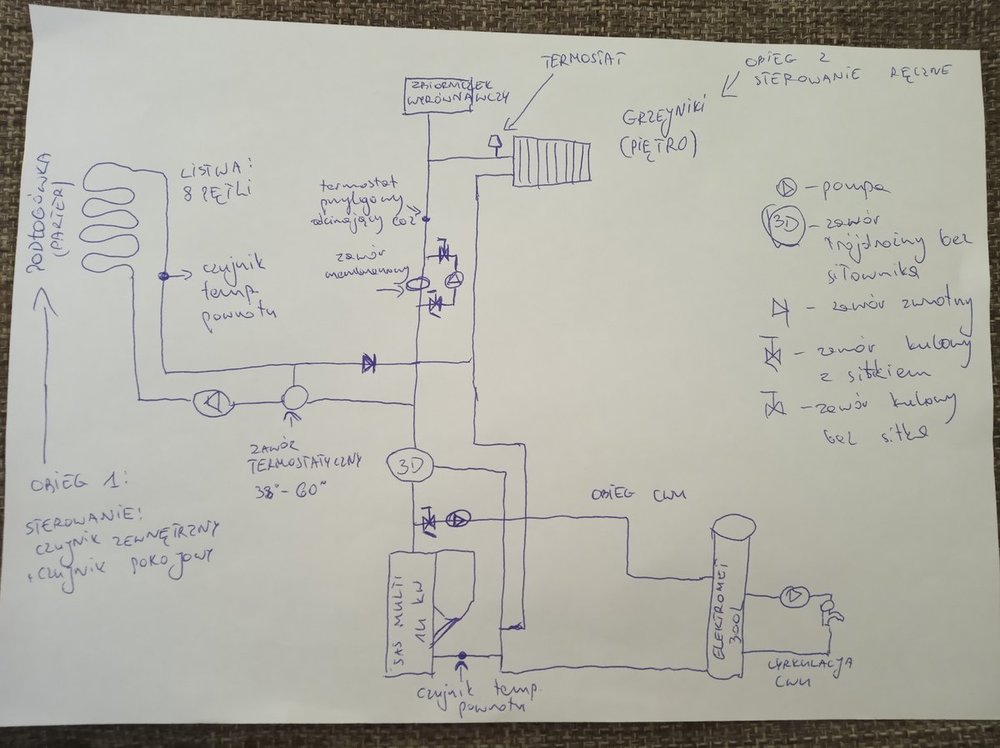 ZBIORNICZEK
WYRÓWNAWCZY
TERMOSTAT
OBIEG 2
STEROWANIE RĘCZNE
GRZEJNIKI
(PIĘTRO)
PODŁOGÓWKA
(PARTER)
LISTWA:
8 PĘTLI
termostat
przylgowy
odcinający co2
zawór
membranowy
czujnik
temp
powrotu
- pompa
3D - zawór
trójdrożny bez
siłownika
- zawór zwrotny
- zawór kulowy
z sitkiem
- zawór kulowy
bez sitka
ZAWÓR
TERMOSTATYCZNY
38°-60°
3D
OBIEG 1:
STEROWANIE:
CZUJNIK ZEWNĘTRZNY
+ CZUJNIK POKOJOWY
OBIEG CWU
SAS MULTI
14 KW
ELEKTROMET
300L
czujnik temp.
powrotu
CYRKULACJA
CWU